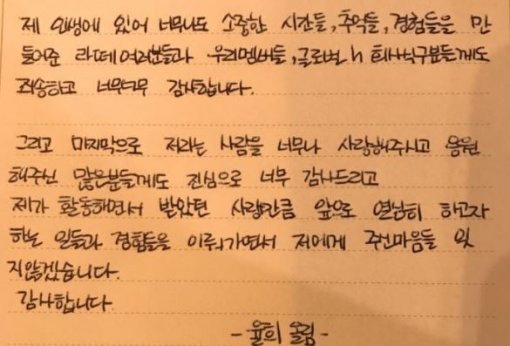 제 인생에 있어 너무나도 소중한 시간들, 추억들, 경험들을 만
들어준 라떼여러분들과 우리멤버들, 글로벌 h 회사식구분들께도
죄송하고 너무너무 감사합니다.
그리고 마지막으로 저라는 사람을 너무나 사랑해주시고 응원
해주신 많은분들께도 진심으로 너무 감사드리고
제가 활동하면서 받았던 사랑만큼 앞으로 열심히 하고자
하는 일들과 경험들을 이뤄가면서 저에게 주신마음들 잊
지않겠습니다.
감사합니다.
- 율희 올림 -